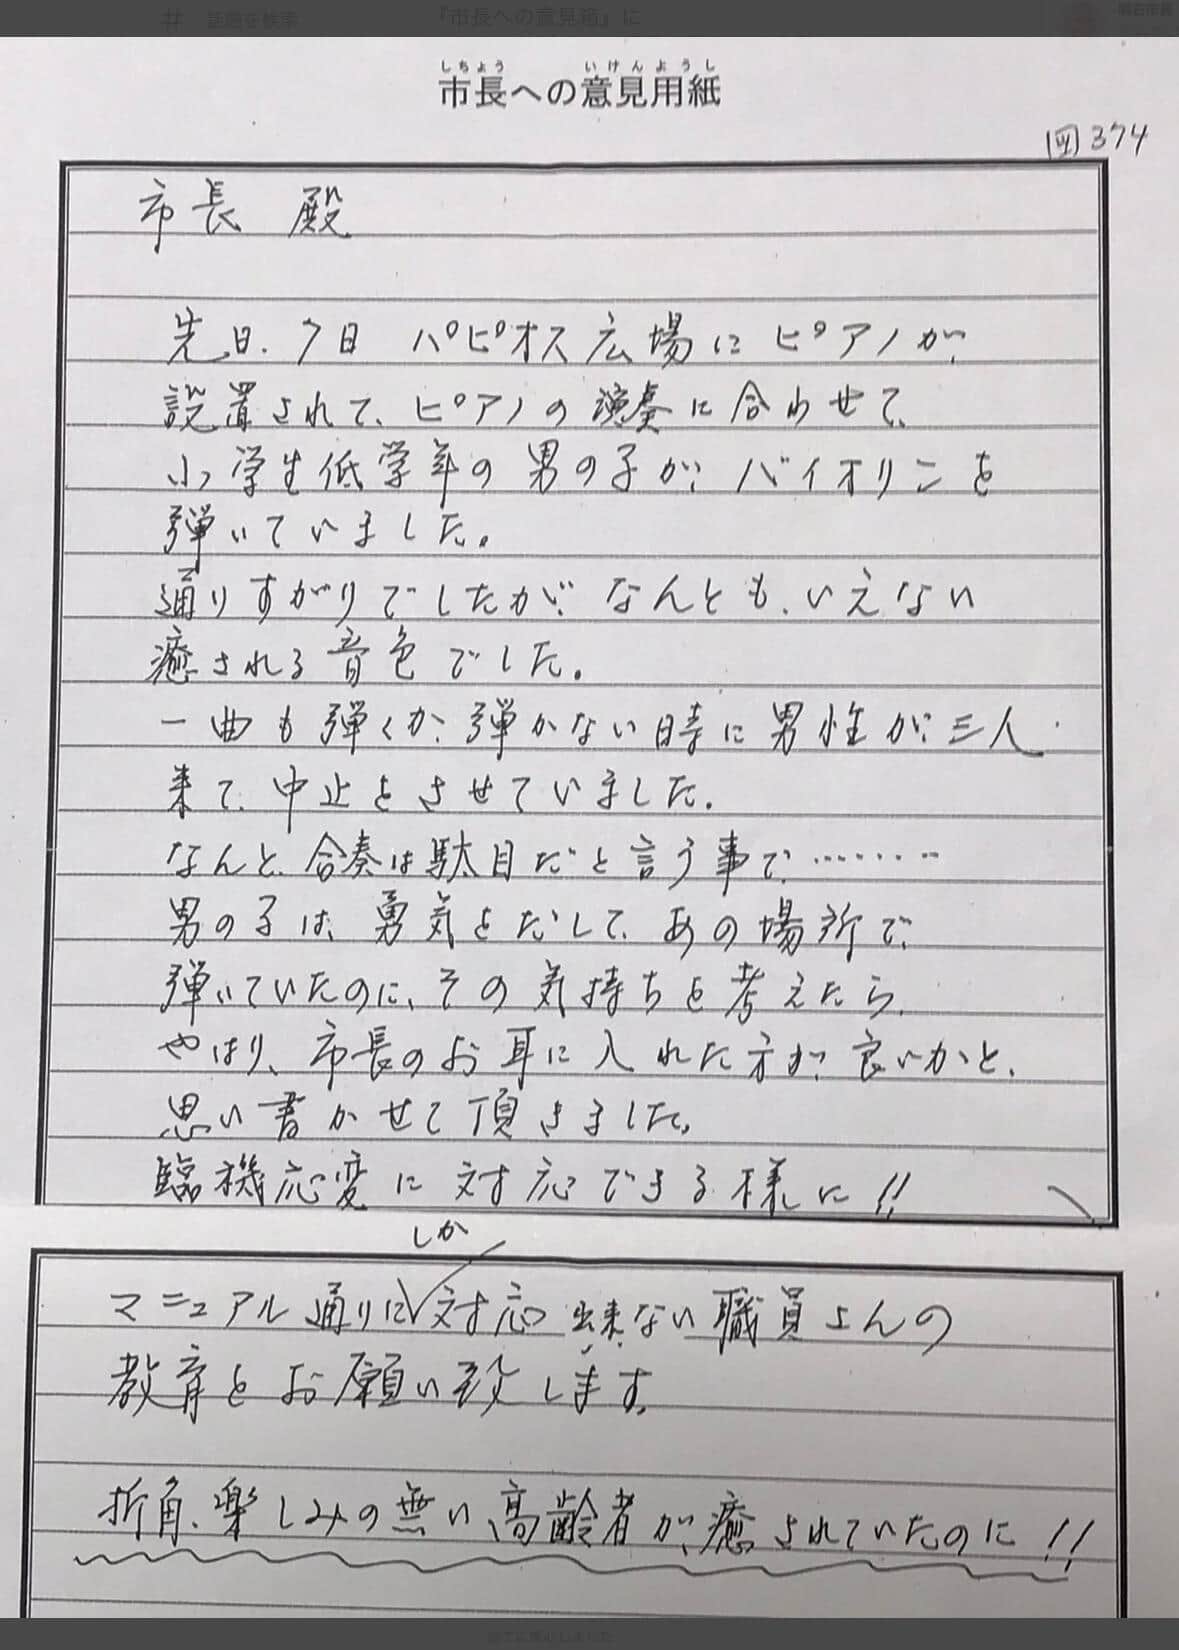 # 話題を検索
『市長への意見箱』に
明石市長
しちょう いけんようし
市長への意見用紙
図374
市長 殿
先日、7日 パピオス広場にピアノが、
設置されて、ピアノの演奏に合わせて、
小学生低学年の男の子が、バイオリンを
弾いていました。
通りすがりでしたが、なんとも、いえない
癒される音色でした。
一曲も弾くか、弾かない時に男性が、三人
来て、中止をさせていました。
なんと、合奏は駄目だと言う事で、‥‥‥‥
男の子は、勇気をだして、あの場所で、
弾いていたのに、その気持ちを考えたら、
やはり、市長のお耳に入れた方が、良いかと、
思い書かせて頂きました。
臨機応変に対応できる様に!!
しか
マニュアル通りに対応出来ない職員さんの
教育をお願い致します。
折角、楽しみの無い、高齢者が、癒されていたのに!!